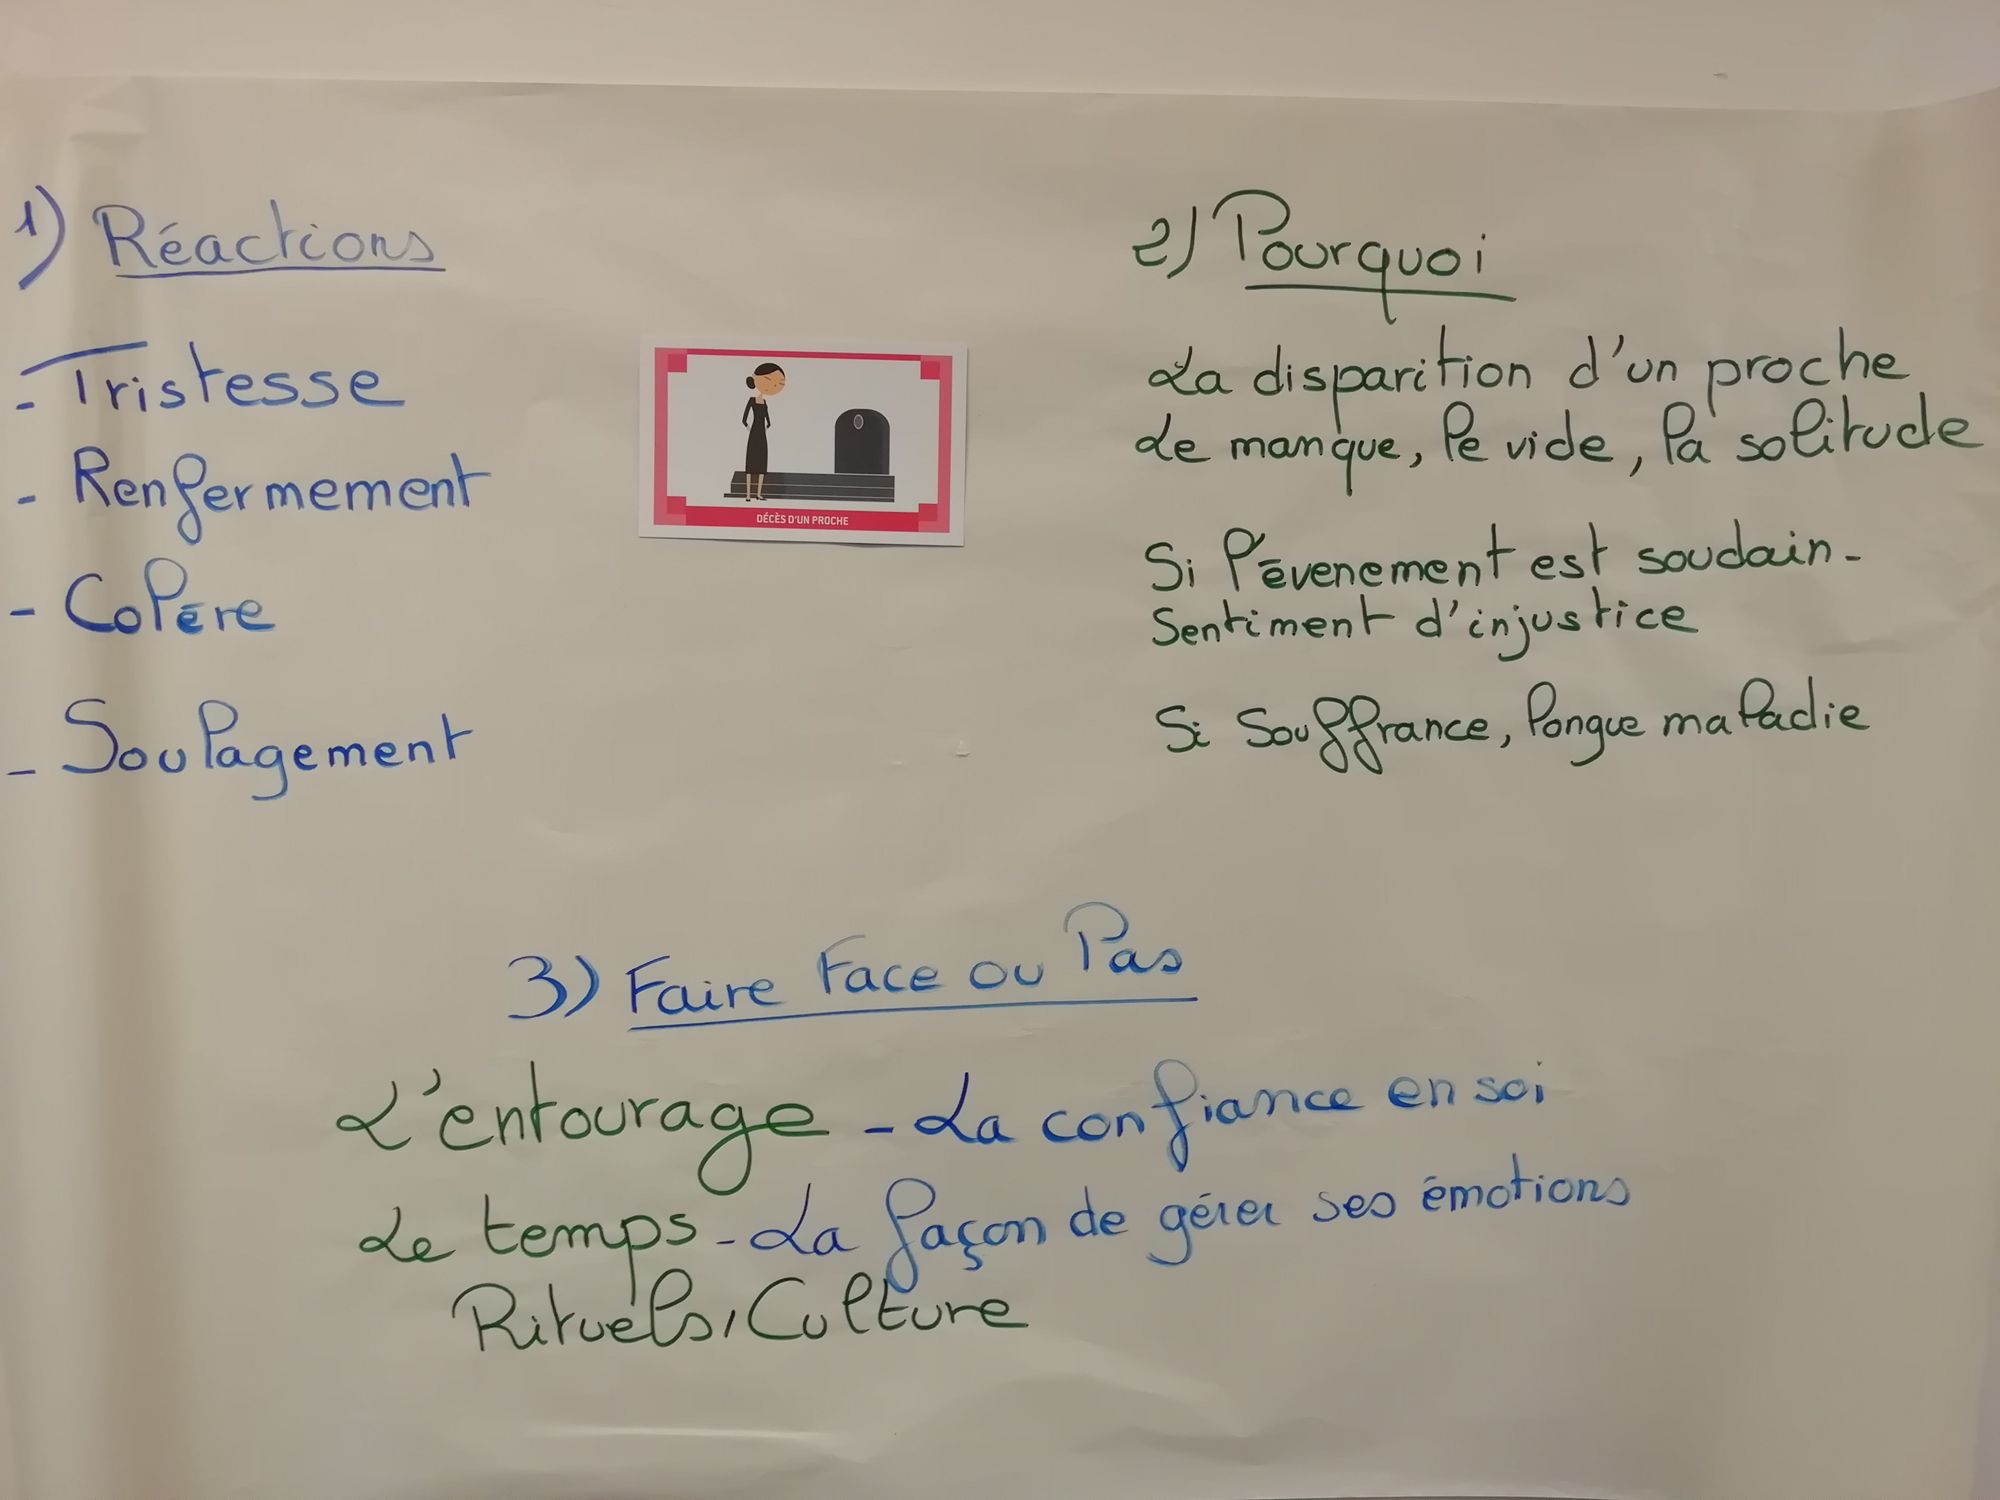 1) Réactions
- Tristesse
- Renfermement
- Colère
- Soulagement
DÉCÈS D'UN PROCHE
2) Pourquoi
La disparition d'un proche
Le manque, le vide, la solitude
Si l'évenement est soudain -
Sentiment d'injustice
Si Souffrance, longue maladie
3) Faire Face ou Pas
L'entourage - La confiance en soi
Le temps - La façon de gérer ses émotions
Rituels, Culture